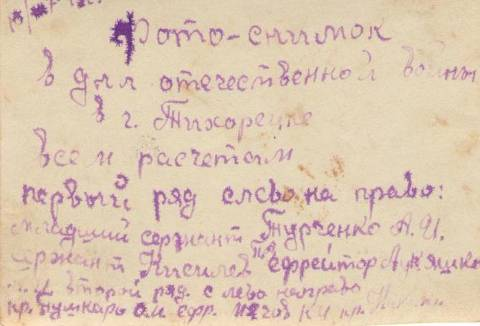 Фото-снимок
в дни отечественной войны
в г. Тихорецке
всем расчетам
первый ряд слево на право:
младший сержант Турченко А.И.
сержант Кисилев ефрейтор
второй ряд. с лево направо
пр. Пушкарь ефр. пр.